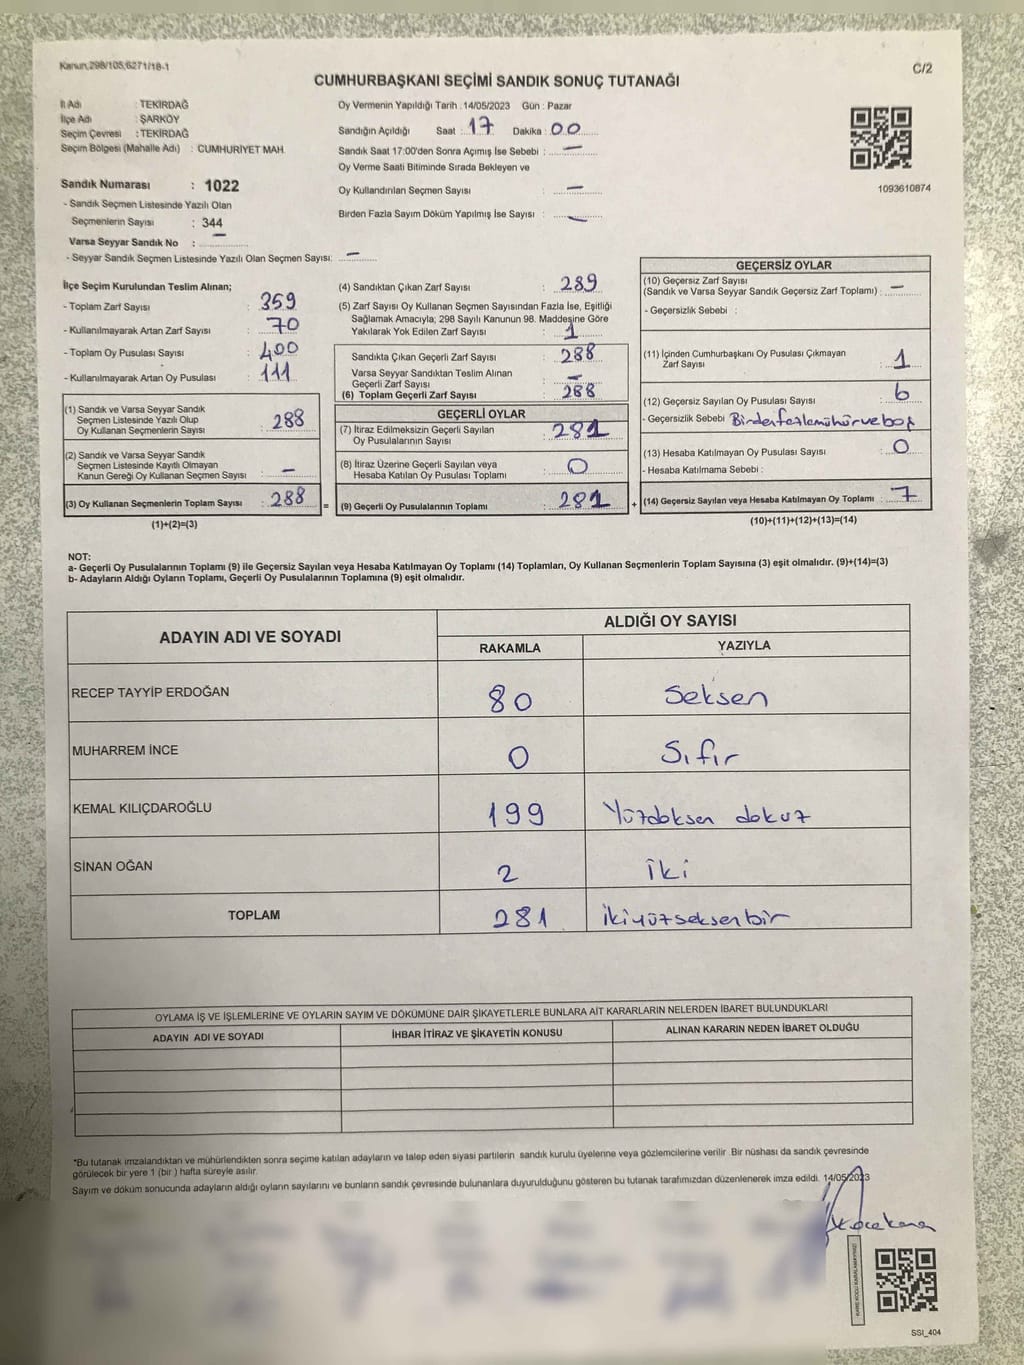 Kanun,298/105,6271/18-1
C/2
CUMHURBAŞKANI SEÇİMİ SANDIK SONUÇ TUTANAĞI
İl Adı : TEKİRDAĞ
İlçe Adı : ŞARKÖY
Seçim Çevresi : TEKİRDAĞ
Seçim Bölgesi (Mahalle Adı) : CUMHURİYET MAH.
Sandık Numarası : 1022
- Sandık Seçmen Listesinde Yazılı Olan
Seçmenlerin Sayısı : 344
Varsa Seyyar Sandık No : –
- Seyyar Sandık Seçmen Listesinde Yazılı Olan Seçmen Sayısı: –
Oy Vermenin Yapıldığı Tarih : 14/05/2023 Gün : Pazar
Sandığın Açıldığı Saat : 17 Dakika : 00
Sandık Saat 17:00'den Sonra Açımış İse Sebebi : –
Oy Verme Saati Bitiminde Sırada Bekleyen ve
Oy Kullandırılan Seçmen Sayısı : –
Birden Fazla Sayım Döküm Yapılmış İse Sayısı : –
1093610874
İlçe Seçim Kurulundan Teslim Alınan;
- Toplam Zarf Sayısı : 359
- Kullanılmayarak Artan Zarf Sayısı : 70
- Toplam Oy Pusulası Sayısı : 400
- Kullanılmayarak Artan Oy Pusulası : 111
(1) Sandık ve Varsa Seyyar Sandık
Seçmen Listesinde Yazılı Olup
Oy Kullanan Seçmenlerin Sayısı : 288
(2) Sandık ve Varsa Seyyar Sandık
Seçmen Listesinde Kayıtlı Olmayan
Kanun Gereği Oy Kullanan Seçmen Sayısı : –
(3) Oy Kullanan Seçmenlerin Toplam Sayısı : 288 =
(1)+(2)=(3)
(4) Sandıktan Çıkan Zarf Sayısı : 289
(5) Zarf Sayısı Oy Kullanan Seçmen Sayısından Fazla İse, Eşitliği
Sağlamak Amacıyla; 298 Sayılı Kanunun 98. Maddesine Göre
Yakılarak Yok Edilen Zarf Sayısı : 1
Sandıkta Çıkan Geçerli Zarf Sayısı : 288
Varsa Seyyar Sandıktan Teslim Alınan
Geçerli Zarf Sayısı : –
(6) Toplam Geçerli Zarf Sayısı : 288
GEÇERLİ OYLAR
(7) İtiraz Edilmeksizin Geçerli Sayılan
Oy Pusulalarının Sayısı : 281
(8) İtiraz Üzerine Geçerli Sayılan veya
Hesaba Katılan Oy Pusulası Toplamı : 0
(9) Geçerli Oy Pusulalarının Toplamı : 281 +
GEÇERSİZ OYLAR
(10) Geçersiz Zarf Sayısı
(Sandık ve Varsa Seyyar Sandık Geçersiz Zarf Toplamı) : –
- Geçersizlik Sebebi :
(11) İçinden Cumhurbaşkanı Oy Pusulası Çıkmayan
Zarf Sayısı : 1
(12) Geçersiz Sayılan Oy Pusulası Sayısı : 6
- Geçersizlik Sebebi : Birden fazla mühür ve boş
(13) Hesaba Katılmayan Oy Pusulası Sayısı : 0
- Hesaba Katılmama Sebebi :
(14) Geçersiz Sayılan veya Hesaba Katılmayan Oy Toplamı : 7
(10)+(11)+(12)+(13)=(14)
NOT:
a- Geçerli Oy Pusulalarının Toplamı (9) ile Geçersiz Sayılan veya Hesaba Katılmayan Oy Toplamı (14) Toplamları, Oy Kullanan Seçmenlerin Toplam Sayısına (3) eşit olmalıdır. (9)+(14)=(3)
b- Adayların Aldığı Oyların Toplamı, Geçerli Oy Pusulalarının Toplamına (9) eşit olmalıdır.
ADAYIN ADI VE SOYADI
ALDIĞI OY SAYISI
RAKAMLA YAZIYLA
RECEP TAYYİP ERDOĞAN 80 Seksen
MUHARREM İNCE 0 Sıfır
KEMAL KILIÇDAROĞLU 199 Yüzdoksen dokuz
SİNAN OĞAN 2 İki
TOPLAM 281 İkiyüzseksenbir
OYLAMA İŞ VE İŞLEMLERİNE VE OYLARIN SAYIM VE DÖKÜMÜNE DAİR ŞİKAYETLERLE BUNLARA AİT KARARLARIN NELERDEN İBARET BULUNDUKLARI
ADAYIN ADI VE SOYADI İHBAR İTİRAZ VE ŞİKAYETİN KONUSU ALINAN KARARIN NEDEN İBARET OLDUĞU
*Bu tutanak imzalandıktan ve mühürlendikten sonra seçime katılan adayların ve talep eden siyasi partilerin sandık kurulu üyelerine veya gözlemcilerine verilir. Bir nüshası da sandık çevresinde
görülecek bir yere 1 (bir ) hafta süreyle asılır.
Sayım ve döküm sonucunda adayların aldığı oyların sayılarını ve bunların sandık çevresinde bulunanlara duyurulduğunu gösteren bu tutanak tarafımızdan düzenlenerek imza edildi. 14/05/2023
KARE KODU KARALAMAYINIZ!
SSI_404